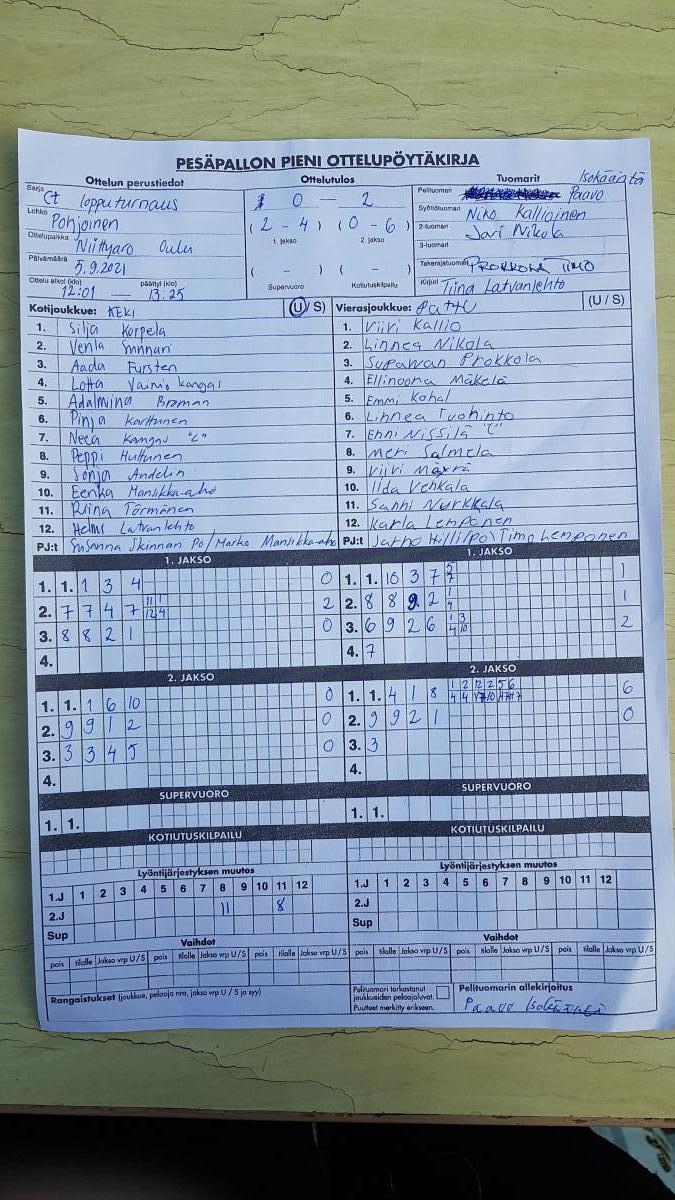 PESÄPALLON PIENI OTTELUPÖYTÄKIRJA
Ottelun perustiedot
Sarja Ct lopputurnaus
Lohko Pohjoinen
Ottelupaikka Niittyaro Oulu
Päivämäärä 5.9.2021
Ottelu alkoi (klo) 12:01 päättyi (klo) 13:25
Ottelutulos
0 — 2
(2 - 4) (0 - 6)
1. jakso 2. jakso
( - ) ( - )
Supervuoro Kotiutuskilpailu
Tuomarit Isokääntä
Pelituomari Paavo
Syöttötuomari Niko Kallioinen
2-tuomari Jari Nikola
3-tuomari
Takarajatuomari PROKKOLA TIMO
Kirjuri Tiina Latvanlehto
Kotijoukkue: KEKI (U / S)
1. Silja Korpela
2. Venla
3. Aada Fursten
4. Lotta Vainio kangas
5. Adalmina Broman
6. Pinja Karttunen
7. Neea Kangas "C"
8. Peppi Huttunen
9. Sonja Andelin
10. Eenka Mansikka-aho
11. Riina Törmänen
12. Helmi Latvanlehto
PJ:t Susanna Skinnari Po/Marko Mansikka-aho
Vierasjoukkue: PattU (U / S)
1. Viiri Kallio
2. Linnea Nikola
3. Supawan Prokkola
4. Ellinoora Mäkelä
5. Emmi Kohal
6. Linnea Tuohinto
7. Enni Nissilä "C"
8. Meri Salmela
9. Viiri Määrä
10. Ilda Vehkala
11. Sanni Nurkkala
12. Karla Lemponen
PJ:t Jarno Hillilpo/Timo Lemponen
1. JAKSO
1. 1. 1 3 4 0
2. 7 7 4 7 11 1 2
12 4
3. 8 8 2 1 0
4.
1. JAKSO
1. 1. 10 3 7 1
2. 8 8 9 2 1 1
4
3. 6 9 2 6 1 3 2
4 10
4. 7
2. JAKSO
1. 1. 1 6 10 0
2. 9 9 1 2 0
3. 3 3 4 5 0
4.
2. JAKSO
1. 1. 4 1 8 1 2 12 2 5 6 6
2. 9 9 2 1 0
3. 3
4.
SUPERVUORO
1. 1.
SUPERVUORO
1. 1.
KOTIUTUSKILPAILU
KOTIUTUSKILPAILU
Lyöntijärjestyksen muutos
1.J 1 2 3 4 5 6 7 8 9 10 11 12
2.J 11 8
Sup
Lyöntijärjestyksen muutos
1.J 1 2 3 4 5 6 7 8 9 10 11 12
2.J
Sup
Vaihdot
pois tilalle Jakso vrp U/S pois tilalle Jakso vrp U/S pois tilalle Jakso vrp U/S
Vaihdot
pois tilalle Jakso vrp U/S pois tilalle Jakso vrp U/S pois tilalle Jakso vrp U/S
Rangaistukset (joukkue, pelaaja nro, jakso vrp U / S ja syy)
Pelituomari tarkastanut
joukkueiden pelaajaluvat.
Puutteet merkitty erikseen.
Pelituomarin allekirjoitus
Paavo Isokääntä